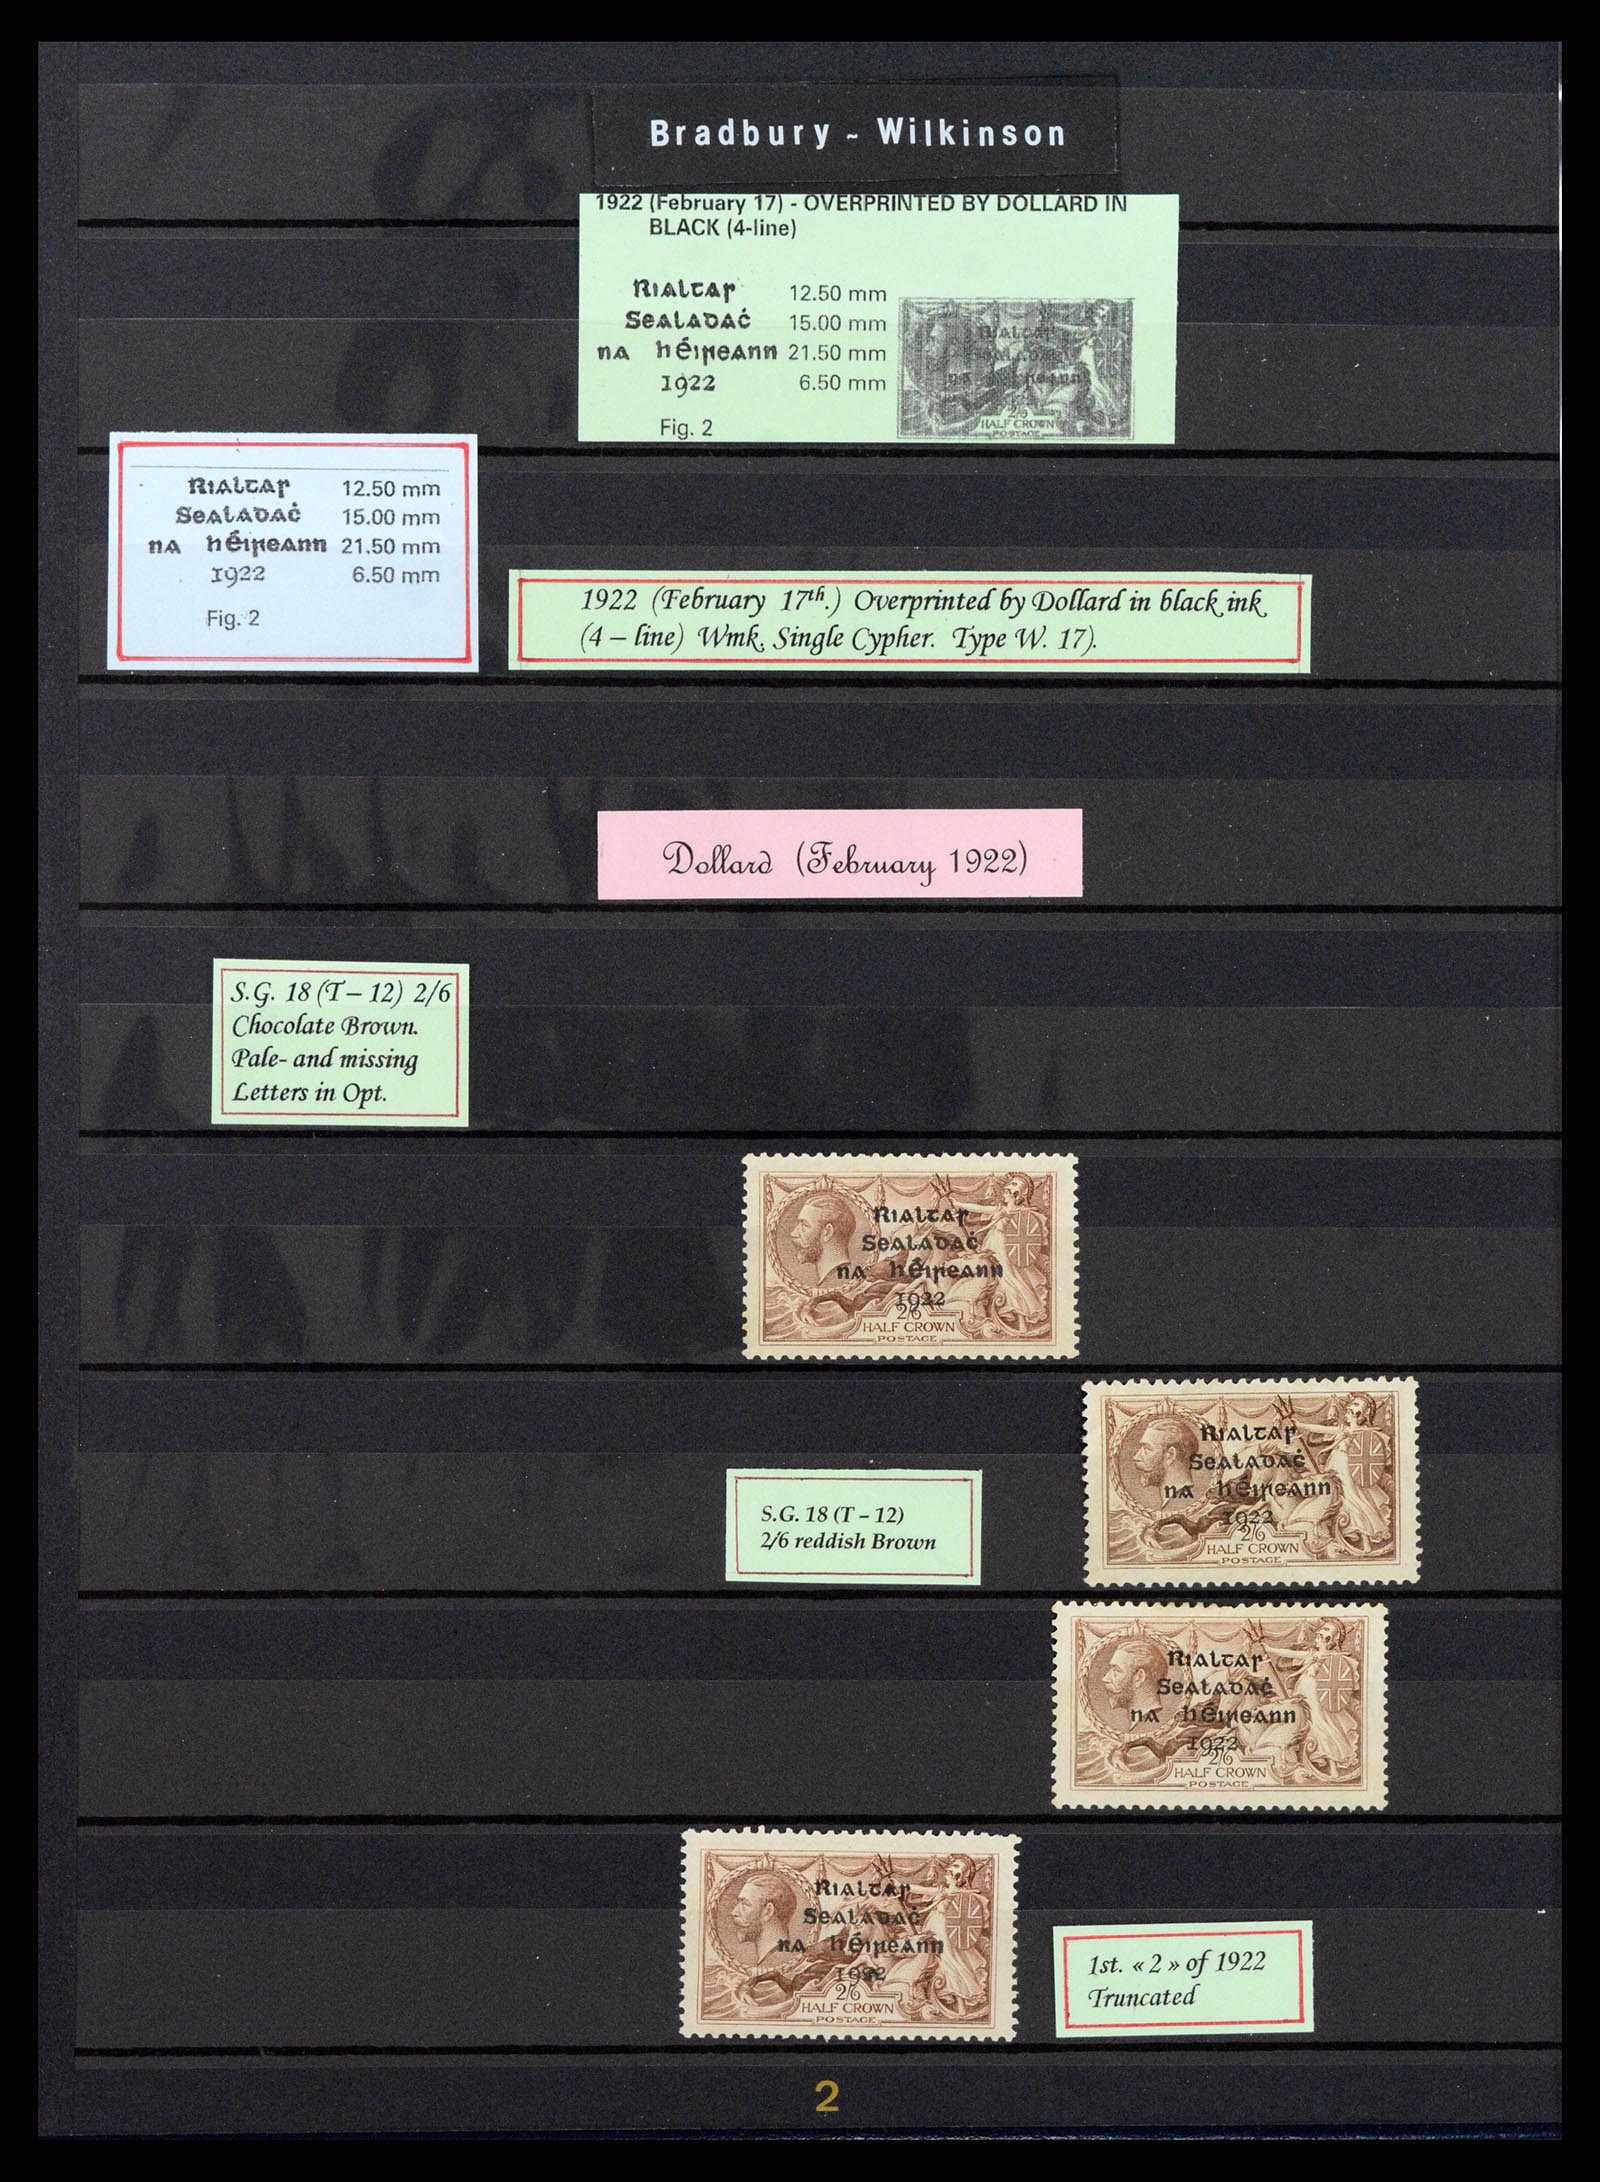 Bradbury ~ Wilkinson
1922 (February 17) - OVERPRINTED BY DOLLARD IN
BLACK (4-line)
Rialtaꞃ 12.50 mm
Sealadaċ 15.00 mm
na hÉiꞃeann 21.50 mm
1922 6.50 mm
Fig. 2
2/6
HALF CROWN
POSTAGE
Rialtaꞃ 12.50 mm
Sealadaċ 15.00 mm
na hÉiꞃeann 21.50 mm
1922 6.50 mm
Fig. 2
1922 (February 17th.) Overprinted by Dollard in black ink
(4 – line) Wmk. Single Cypher. Type W. 17).
Dollard (February 1922)
S.G. 18 (T – 12) 2/6
Chocolate Brown.
Pale- and missing
Letters in Opt.
Rialtaꞃ
Sealadaċ
na hÉiꞃeann
1922
2/6
HALF CROWN
POSTAGE
Rialtaꞃ
Sealadaċ
na hÉiꞃeann
1922
2/6
HALF CROWN
POSTAGE
S.G. 18 (T – 12)
2/6 reddish Brown
Rialtaꞃ
Sealadaċ
na hÉiꞃeann
1922
2/6
HALF CROWN
POSTAGE
Rialtaꞃ
Sealadaċ
na hÉiꞃeann
1922
2/6
HALF CROWN
POSTAGE
1st. « 2 » of 1922
Truncated
2